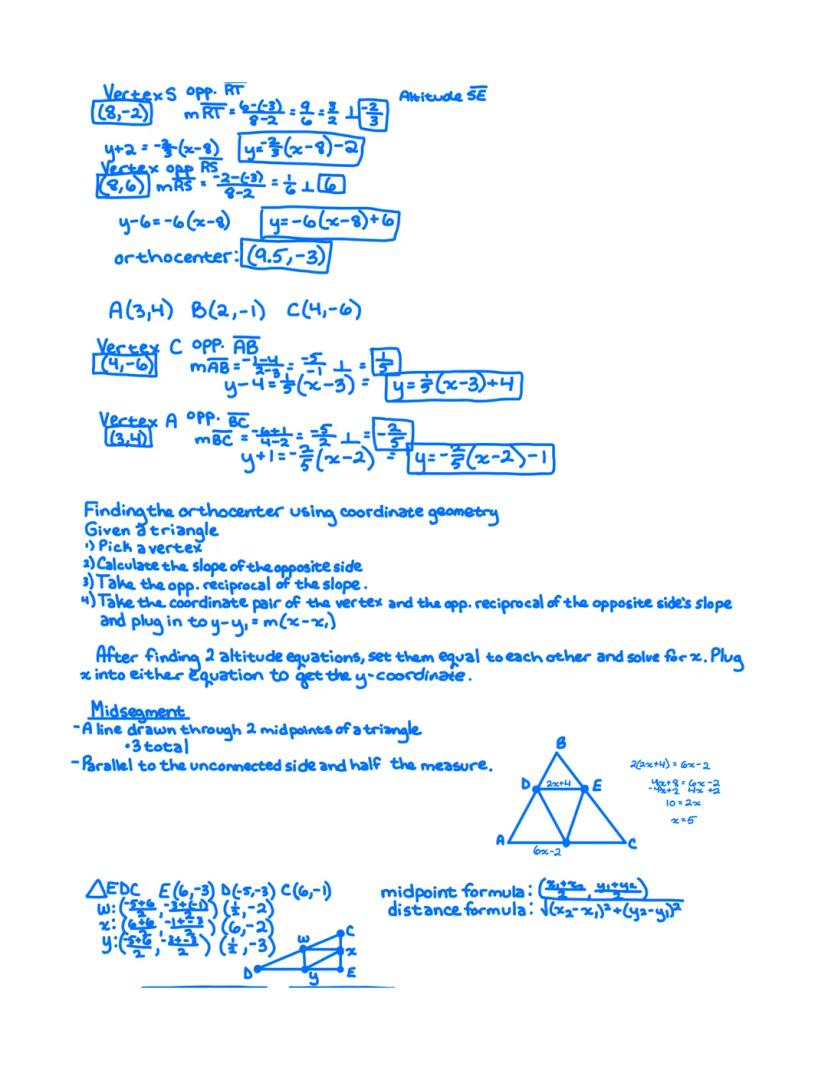 Vertex S opp. R̅T̅ Altitude S̅E̅
(8,-2) mR̅T̅ = 6-(-3)/8-2 = 9/6 = 3/2 ⊥ -2/3
y+2 = -2/3(x-8) y=-2/3(x-8)-2
Vertex opp R̅S̅
(8,6) mR̅S̅ = -2-(-3)/8-2 = 1/6 ⊥ 6
y-6=-6(x-8) y=-6(x-8)+6
orthocenter: (9.5,-3)
A(3,4) B(2,-1) C(4,-6)
Vertex C opp. A̅B̅
(4,-6) mA̅B̅ = -1-4/2-3 = -5/-1 ⊥ = 1/5
y-4=1/5(x-3) = y=1/5(x-3)+4
Vertex A opp. B̅C̅
(3,4) mB̅C̅ = -6+1/4-2 = -5/2 ⊥ = -2/5
y+1=-2/5(x-2) = y=-2/5(x-2)-1
Finding the orthocenter using coordinate geometry
Given a triangle
1) Pick a vertex
2) Calculate the slope of the opposite side
3) Take the opp. reciprocal of the slope.
4) Take the coordinate pair of the vertex and the opp. reciprocal of the opposite side's slope
and plug in to y-y₁ = m(x-x₁)
After finding 2 altitude equations, set them equal to each other and solve for x. Plug
x into either equation to get the y-coordinate.
Midsegment
-A line drawn through 2 midpoints of a triangle
•3 total
-Parallel to the unconnected side and half the measure.
B
D 2x+4 E
A 6x-2 C
2(2x+4) = 6x-2
4x+8 = 6x-2
-4x+2 4x +2
10=2x
x=5
△EDC E(6,-3) D(-5,-3) C(6,-1)
w: (-5+6/2, -3+(-1)/2) (1/2,-2)
x: (6+6/2, -1+-3/2) (6,-2)
y: (-5+6/2, -3+-3/2) (1/2,-3)
midpoint formula: (x₁+x₂/2, y₁+y₂/2)
distance formula: √(x₂-x₁)²+(y₂-y₁)²
C
w x
D y E